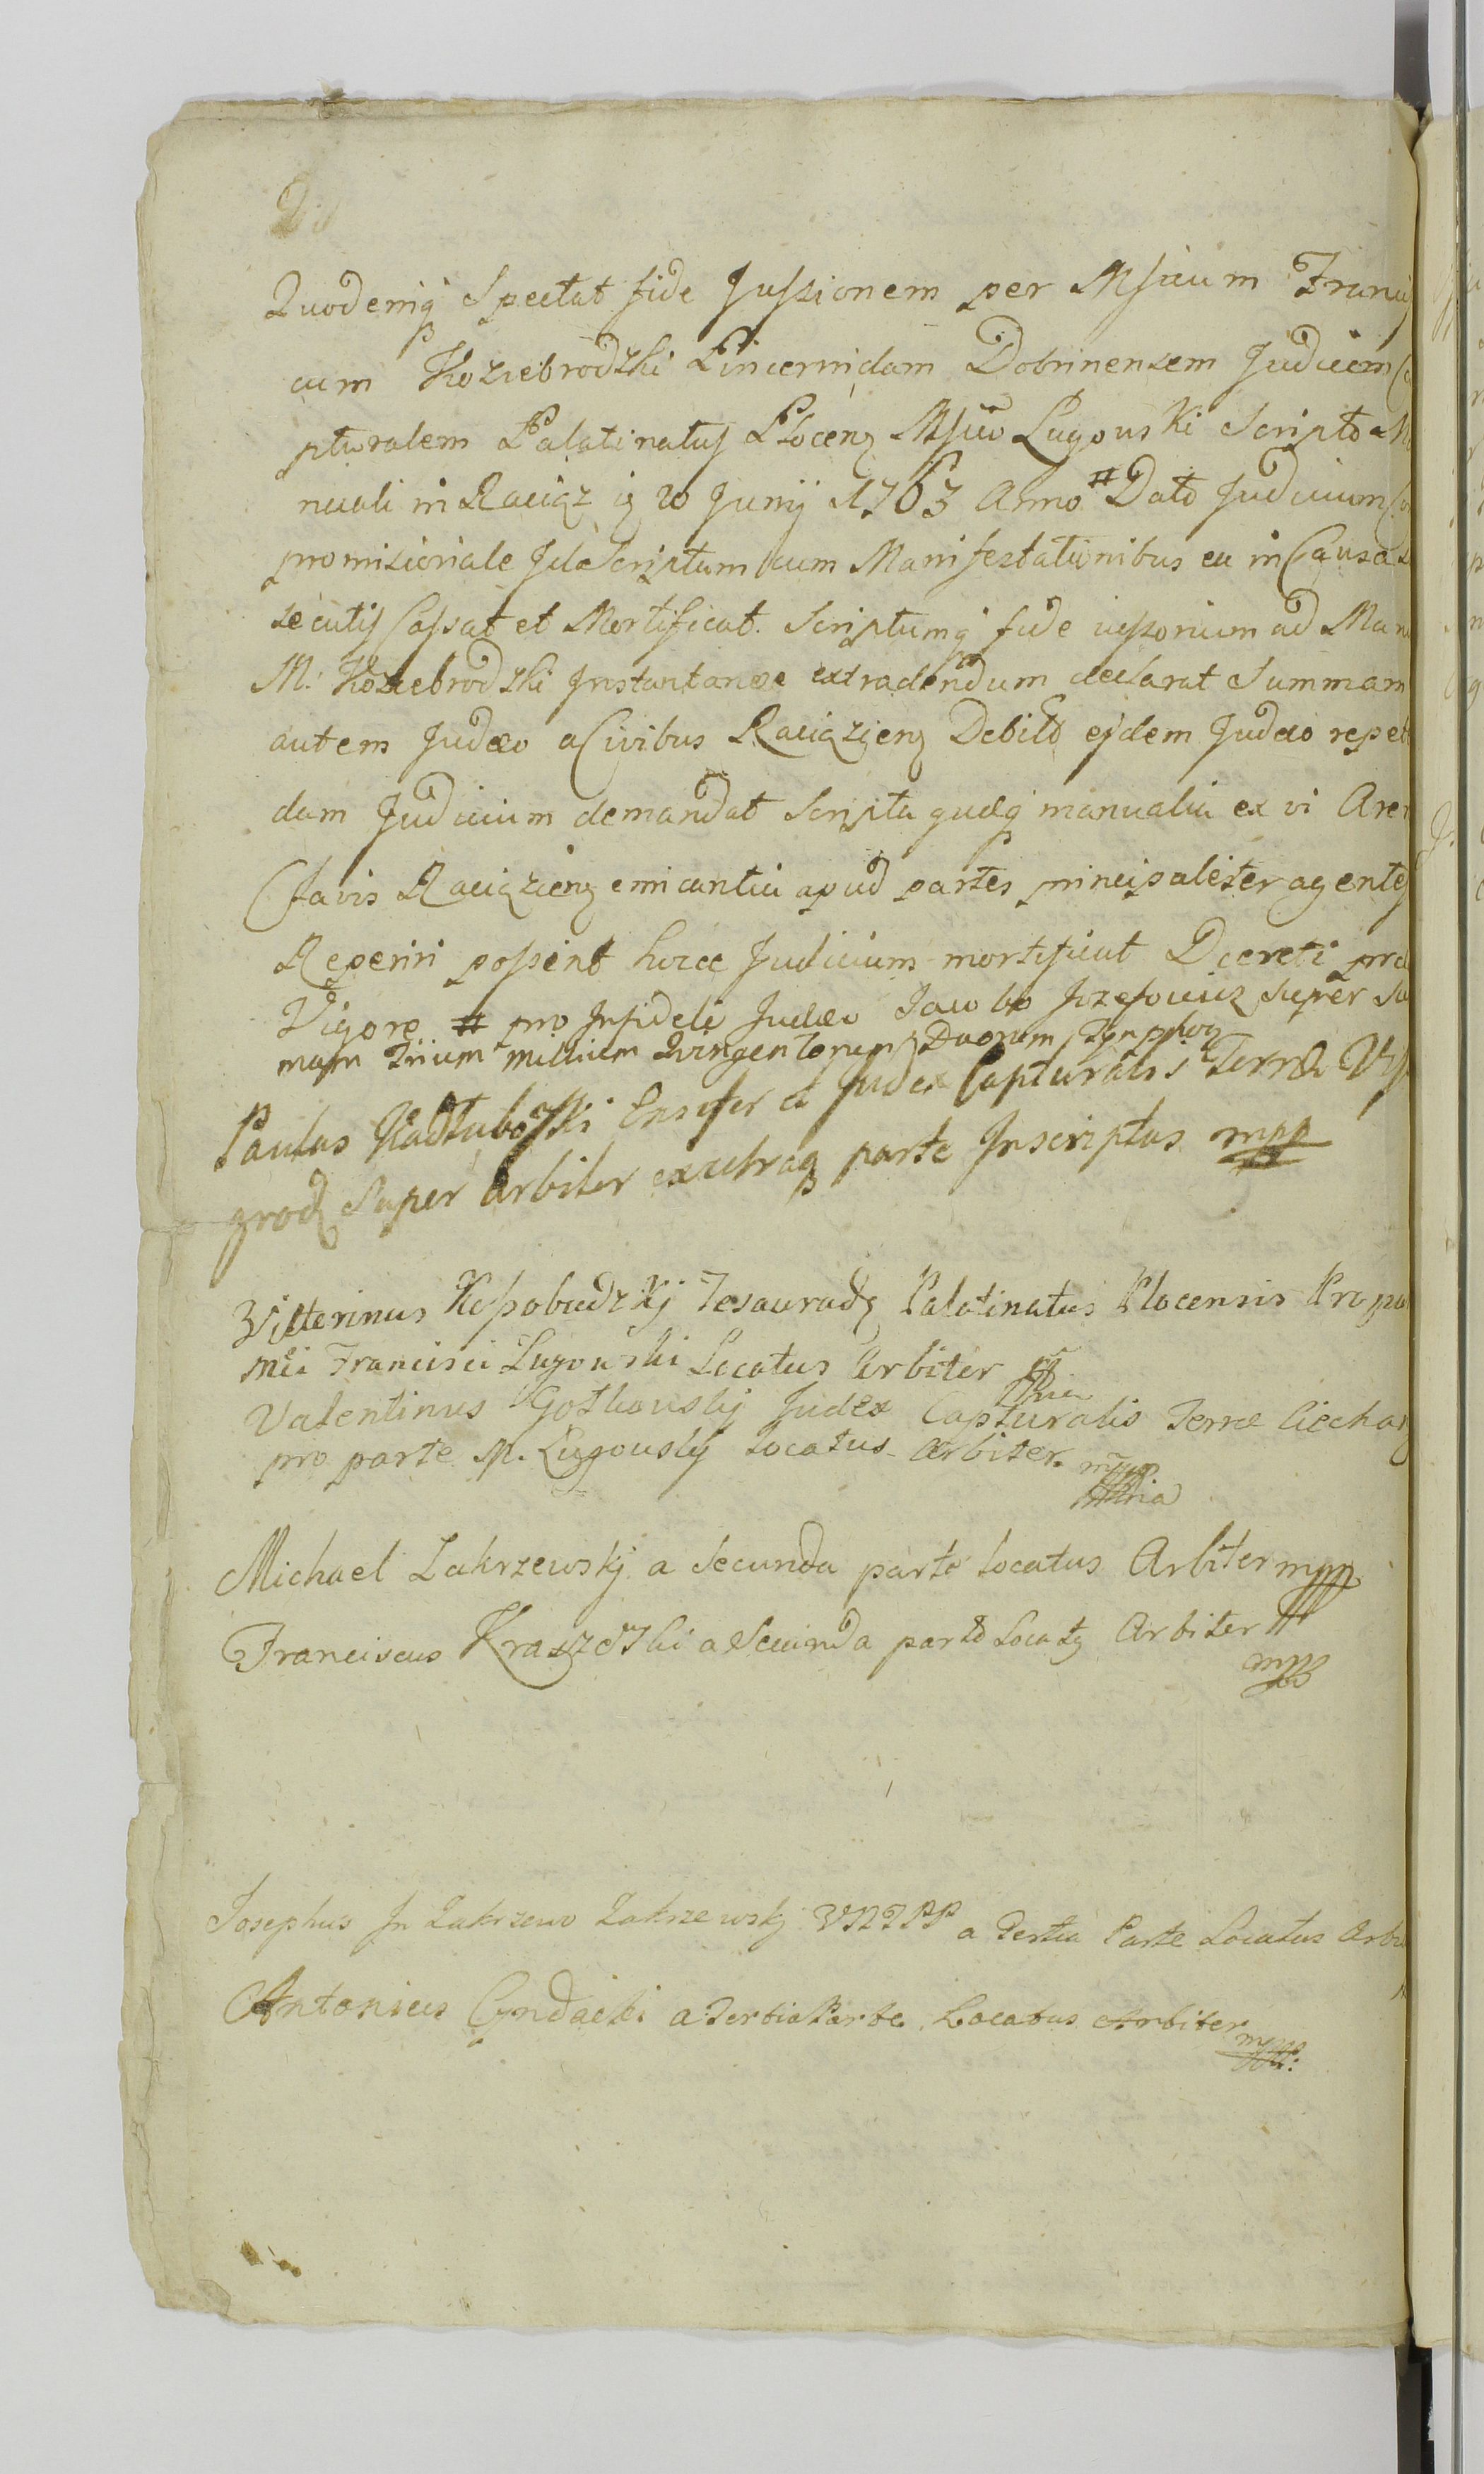 Quodenıq Spectat fide Jussionem per Msicum Franci
cum Koziebrodzki Pincernidam Dobrinensem Judicem Ca
pturalem Palatinatus Plocenz Msico Lugowski Scripto Ma
nuali in Raciąz 20 Junij 1763 Anno # Dato Judicium Co
promissoriale Scriptum cum Manifestationibus ea in Causa
secutis Cassat et Mortificat. Scriptumq fide iussorium ad Man
M. Koziebrodzki Instantanee extradendum declarat Summam
autem Judæo a Civibus Raciązienz Debito ejdem Judæo repet
dam Judicium demandat Scripta quæq manualia ex vi Aren
Clavis Raciązienz emicantia apud partes principaliter agentes
Reperiri possent hocce Judicium mortificat Decreti præ
Vigore # pro Infideli Judæo Jacobo Jozefowicz super Su
mam Trium millium Quingentorum Duorum Tynphor
Paulus Kadłubowski Ensifer et Judex Capturalis Terræ Vis
grod Super Arbiter ex utraq parte Inscriptus mpp
Victerinus Kossobudzkj Tesauradz Palatinatus Plocensis Pro pa
Mci Francisci Lugowski Locatus Arbiter mpp
Valentinus Gotkowskj Judex Capturalis Terræ Ciechan
pro parte M. Lugowskij locatus Arbiter. mpp
Michael Zakrzewskj a Secunda parte locatus Arbiter mpp
Franciscus Kraszewski a Secunda parte Locatq Arbiter
mpp
Josephus In Zakrzewo Zakrzewskj a Tertia Parte Locatus Arbi
Antonius Cyndacki a Tertia Parte Locatus Arbiter
mpp